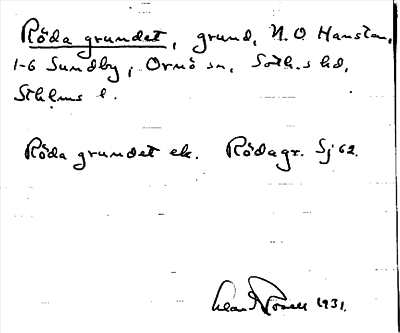 Röda grundet, grund, N.O. Hanstan,
1-6 Sundby, Ornö sn, Soth.s hd,
Sthlms l.
Röda grundet ek. Rödagr. Sj 62.
1931.